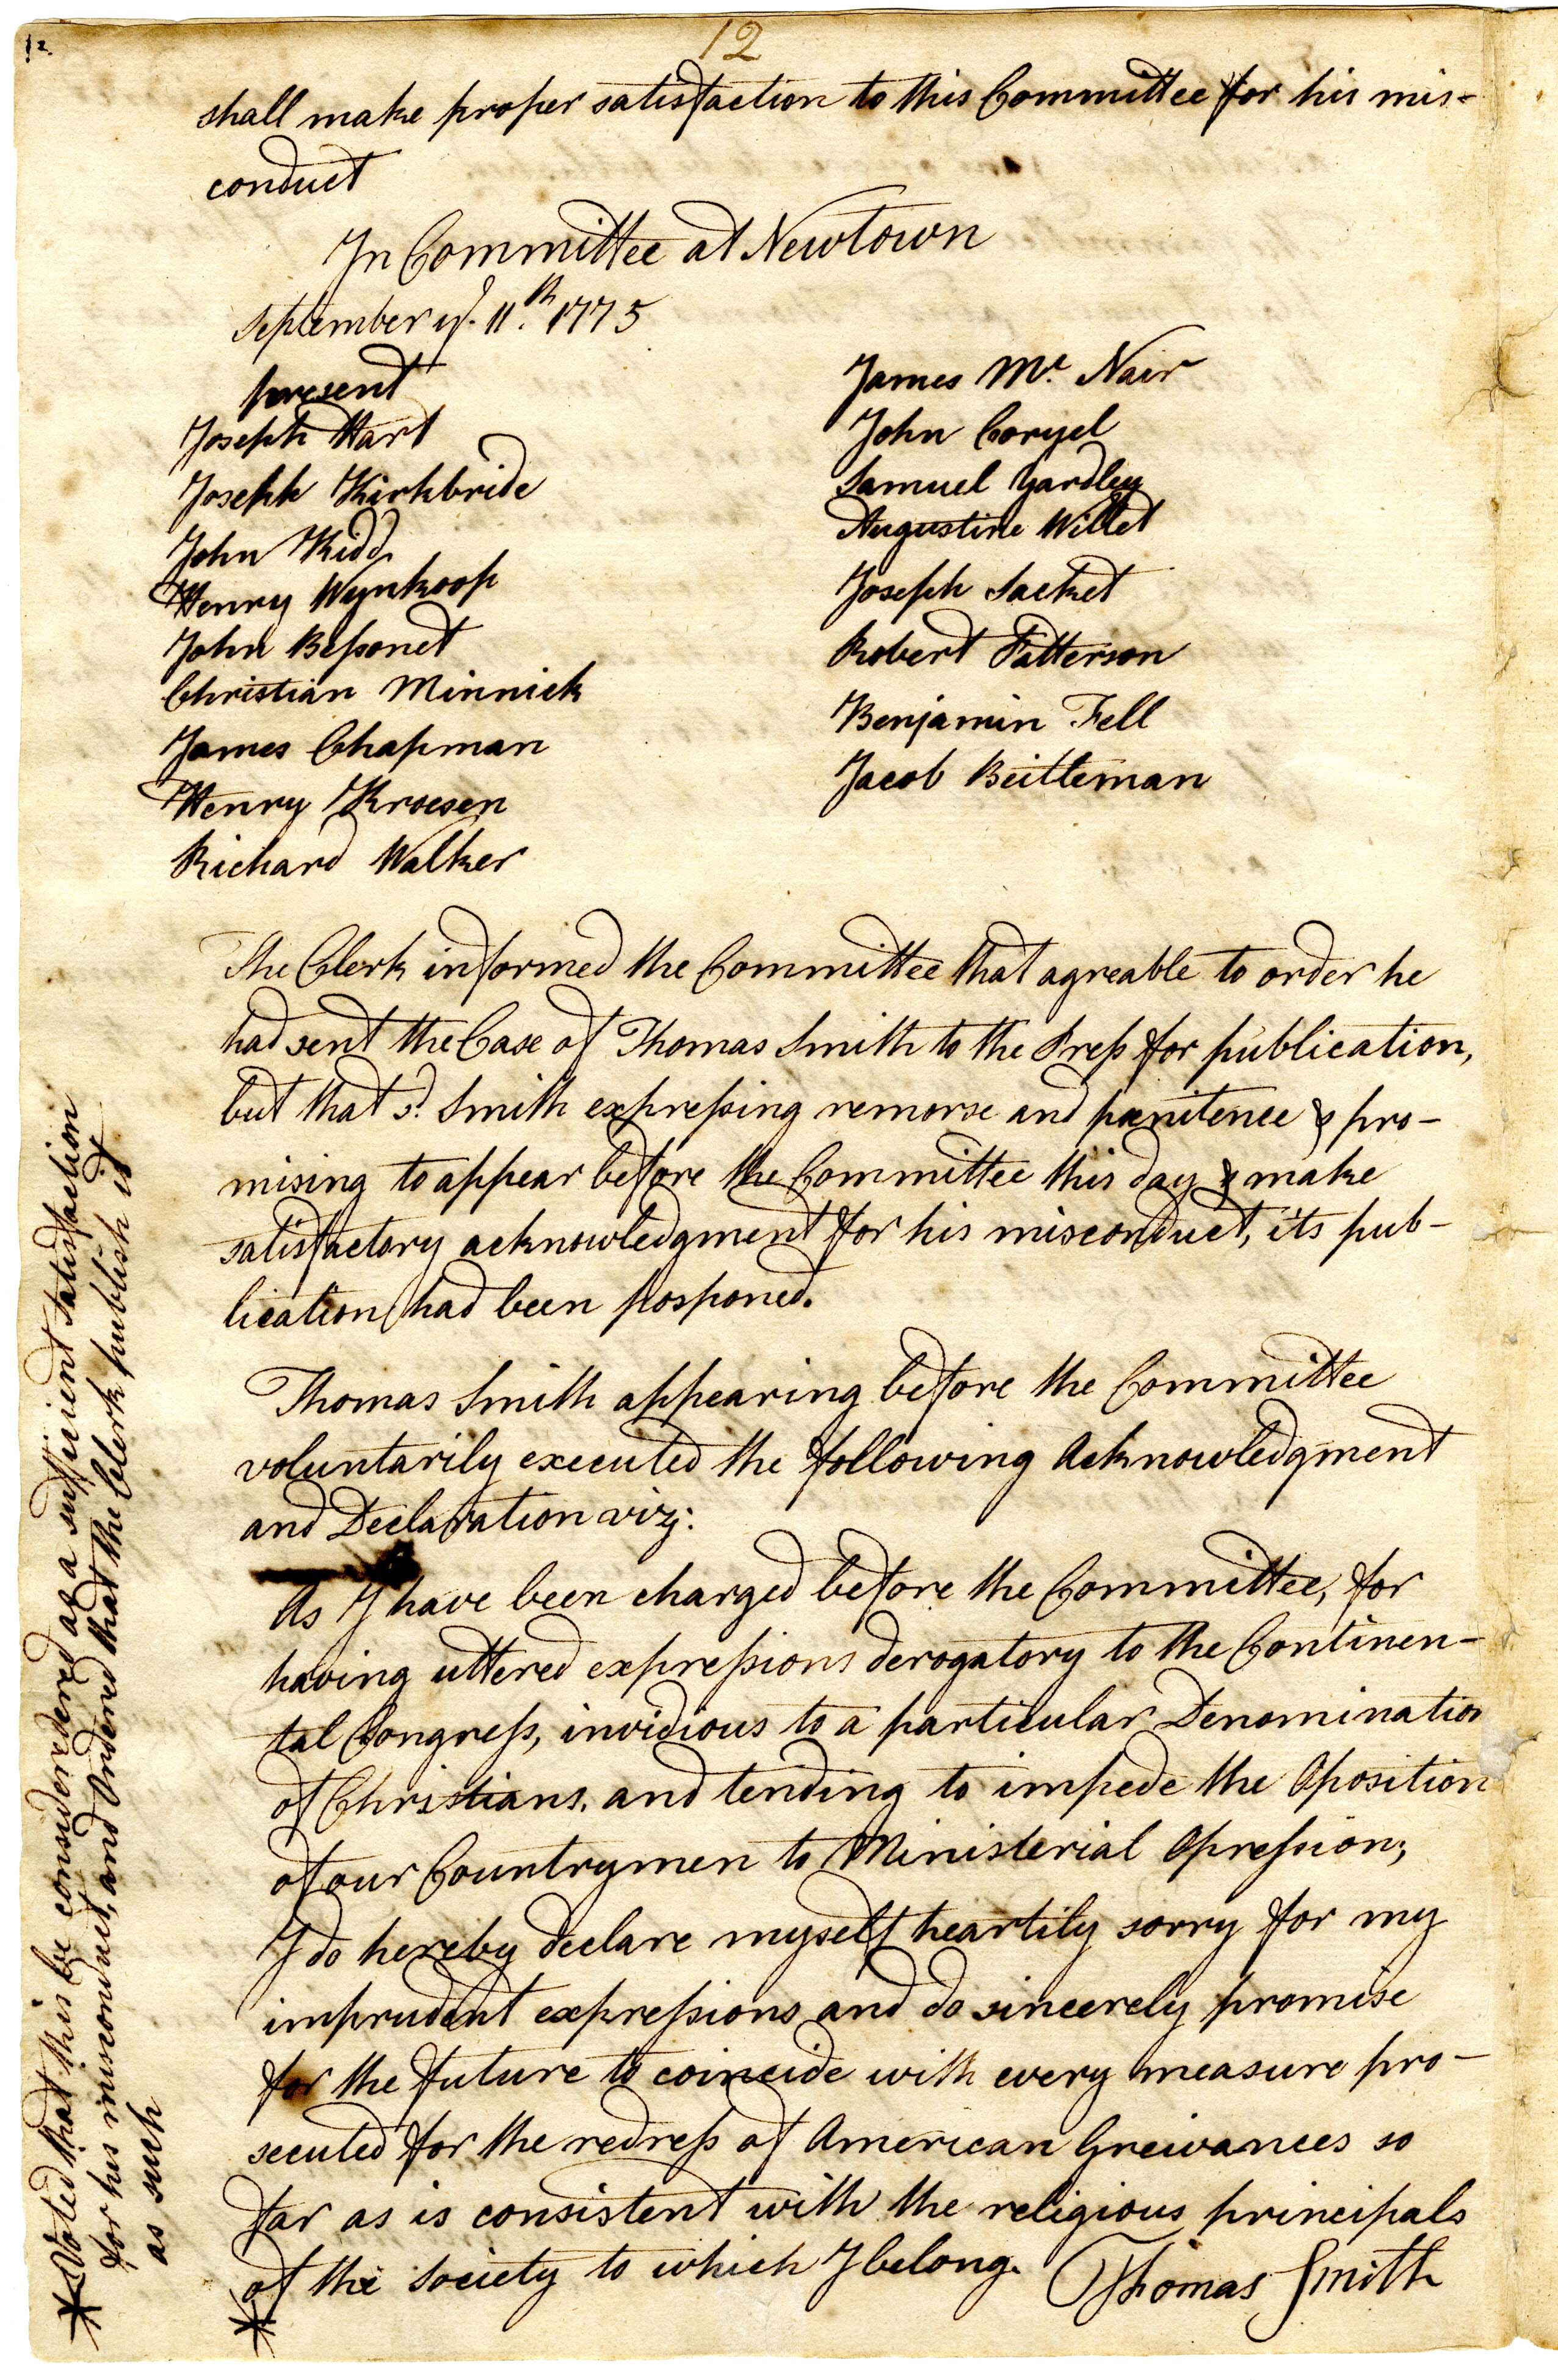 12.
12
shall make proper satisfaction to this Committee for his mis-
conduct
In Committee at Newtown
September ye. 11.th 1775
present
Joseph Hart
Joseph Kirkbride
John Kidd
Henry Wynkoop
John Beſsonet
Christian Minnick
James Chapman
Henry Kroesen
Richard Walker
James Mc. Nair
John Coryel
Samuel Yardley
Augustine Willet
Joseph Sacket
Robert Patterson
Benjamin Fell
Jacob Beitleman
The Clerk informed the Committee that agreable to order he
had sent the Case of Thomas Smith to the Preſs for publication,
but that sd. Smith expreſsing remorse and penitence & pro-
mising to appear before the Committee this day & make
satisfactory acknowledgment for his misconduct, its pub-
lication had been posponed.
Thomas Smith appearing before the Committee
voluntarily executed the following Acknowledgment
and Declaration viz:
As I have been charged before the Committee, for
having uttered expreſsions derogatory to the Continen-
tal Congreſs, invidious to a particular Denomination
of Christians, and tending to impede the Oposition
of our Countrymen to Ministerial Opreſsion;
I do hereby declare myself heartily sorry for my
imprudent expreſsions and do sincerely promise
for the future to coincide with every measure pro-
secuted for the redreſs of American Greivances so
far as is consistent with the religious principals
of the Society to which I belong. Thomas Smith
*
* Voted that this be considerered as a sufficient satisfaction
for his misconduct, and Ordered that the Clerk publish it
as such